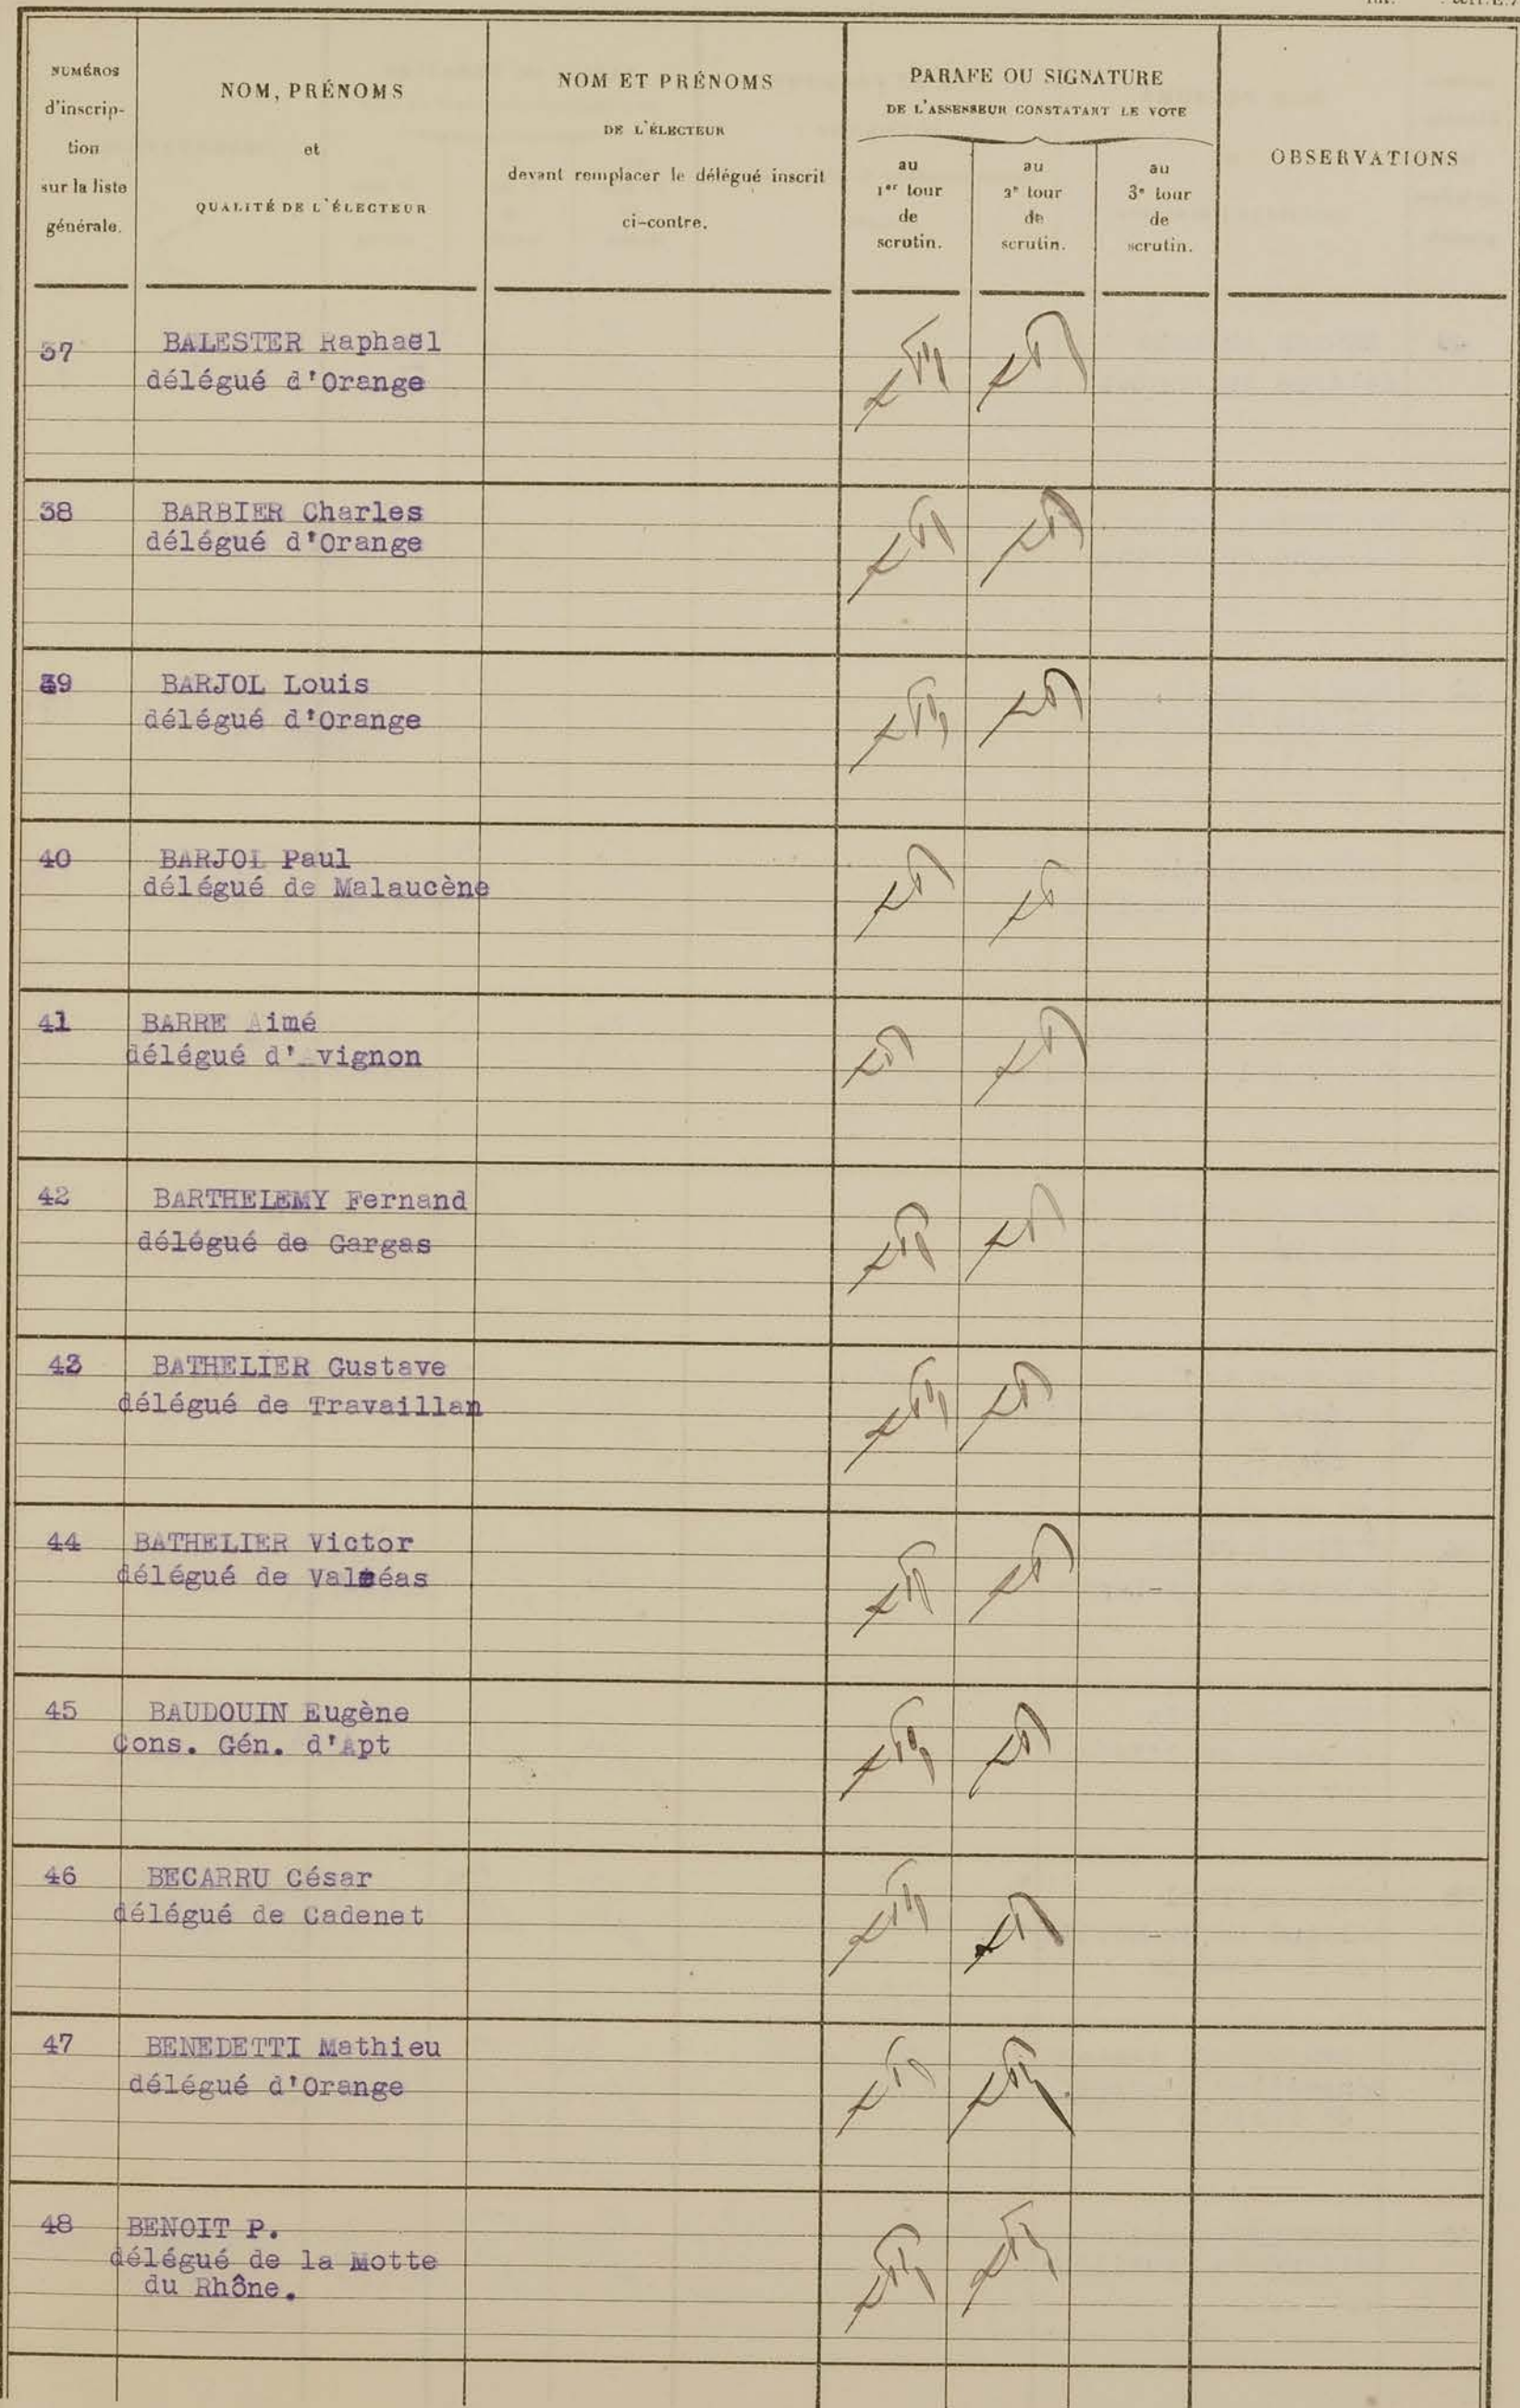 NUMÉROS
d'inscrip-
tion
sur la liste
générale.
NOM, PRÉNOMS
et
QUALITÉ DE L'ÉLECTEUR
NOM ET PRÉNOMS
DE L'ÉLECTEUR
devant remplacer le délégué inscrit
ci-contre.
PARAFE OU SIGNATURE
DE L'ASSESSEUR CONSTATANT LE VOTE
au
1er tour
de
scrutin.
au
2e tour
de
scrutin.
au
3e tour
de
scrutin.
OBSERVATIONS
37 BALESTER Raphaël
délégué d'Orange
38 BARBIER Charles
délégué d'Orange
39 BARJOL Louis
délégué d'Orange
40 BARJOL Paul
délégué de Malaucène
41 BARRE Aimé
délégué d'Avignon
42 BARTHELEMY Fernand
délégué de Gargas
43 BATHELIER Gustave
délégué de Travaillan
44 BATHELIER Victor
délégué de Valréas
45 BAUDOUIN Eugène
Cons. Gén. d'Apt
46 BECARRU César
délégué de Cadenet
47 BENEDETTI Mathieu
délégué d'Orange
48 BENOIT P.
délégué de la Motte
du Rhône.